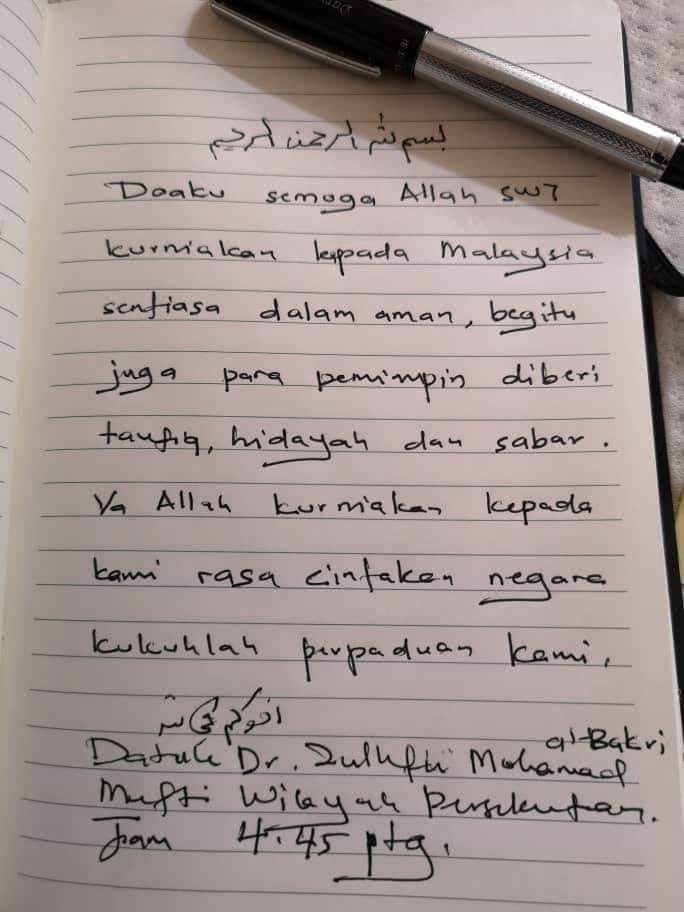 بسم الله الرحمن الرحيم
Doaku semoga Allah SWT
kurniakan kepada Malaysia
sentiasa dalam aman, begitu
juga para pemimpin diberi
taufiq, hidayah dan sabar.
Ya Allah kurniakan kepada
kami rasa cintakan negara
kukuhlah perpaduan kami,
اخوكم في الله
Datuk Dr. Zulkifli Mohamad al-Bakri
Mufti Wilayah Persekutuan.
Jam 4.45 ptg.